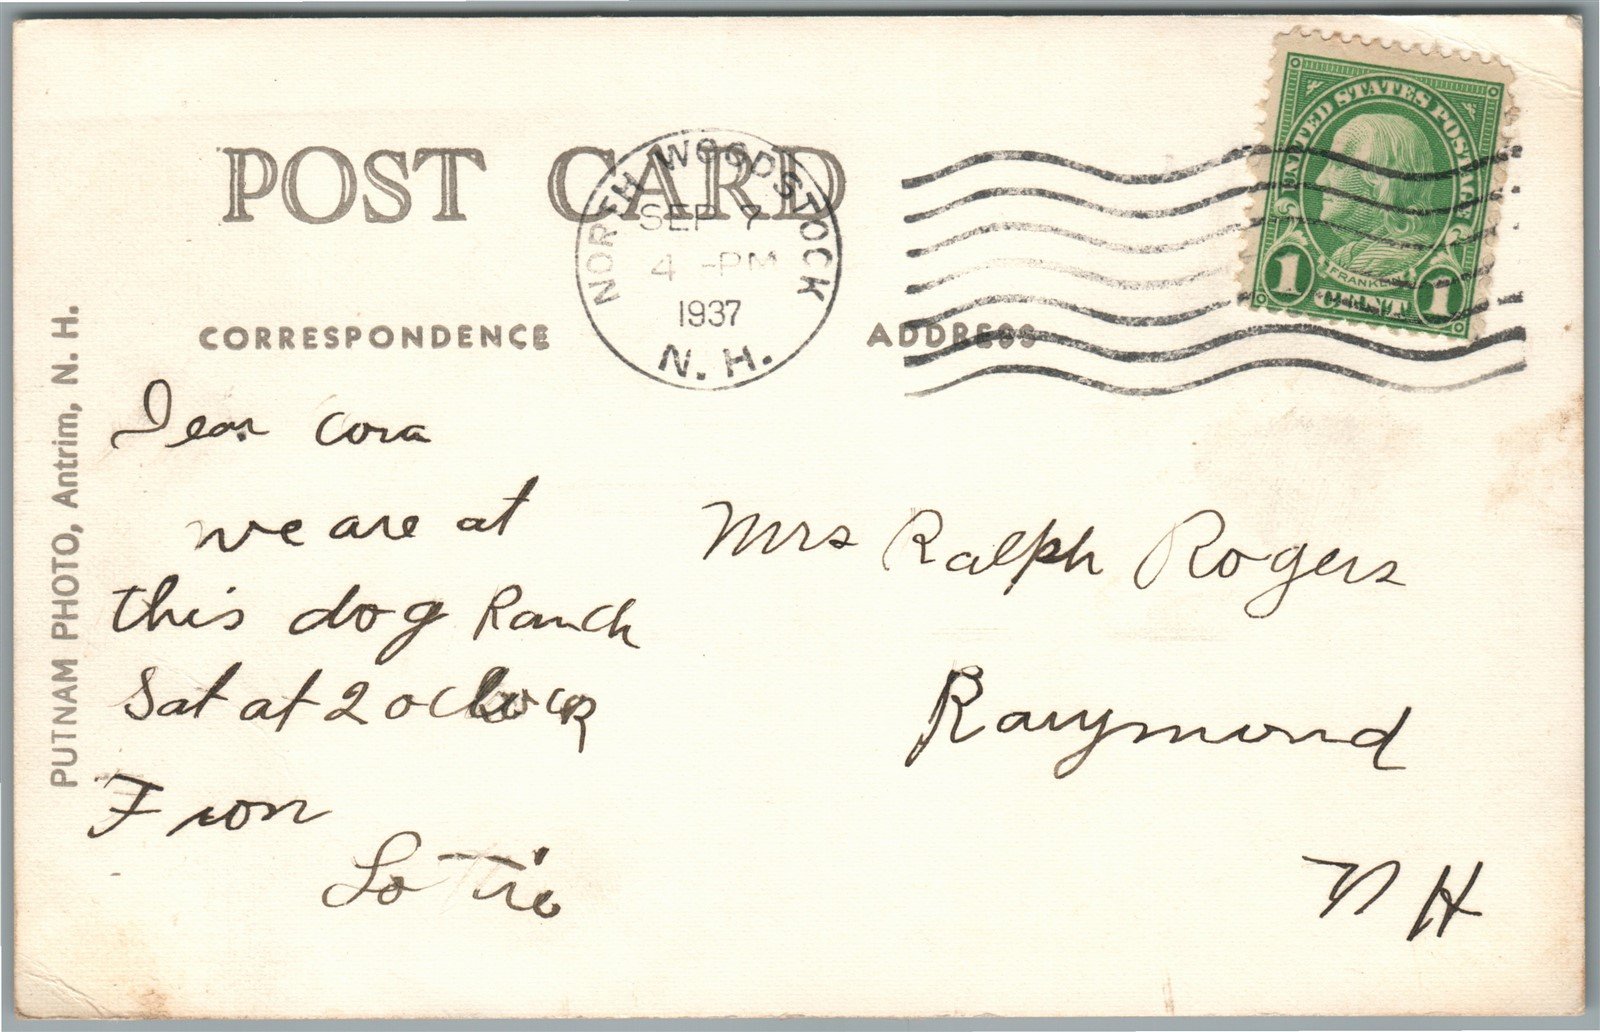 POST CARD
NORTH WOODSTOCK
SEP 7
4 -PM
1937
N. H.
UNITED STATES POSTAGE
FRANKLIN
1 1
CORRESPONDENCE
ADDRESS
PUTNAM PHOTO, Antrim, N. H.
Dear Cora
we are at
this dog Ranch
Sat at 2 oclock
From
Lottie
Mrs Ralph Rogers
Raymond
N H